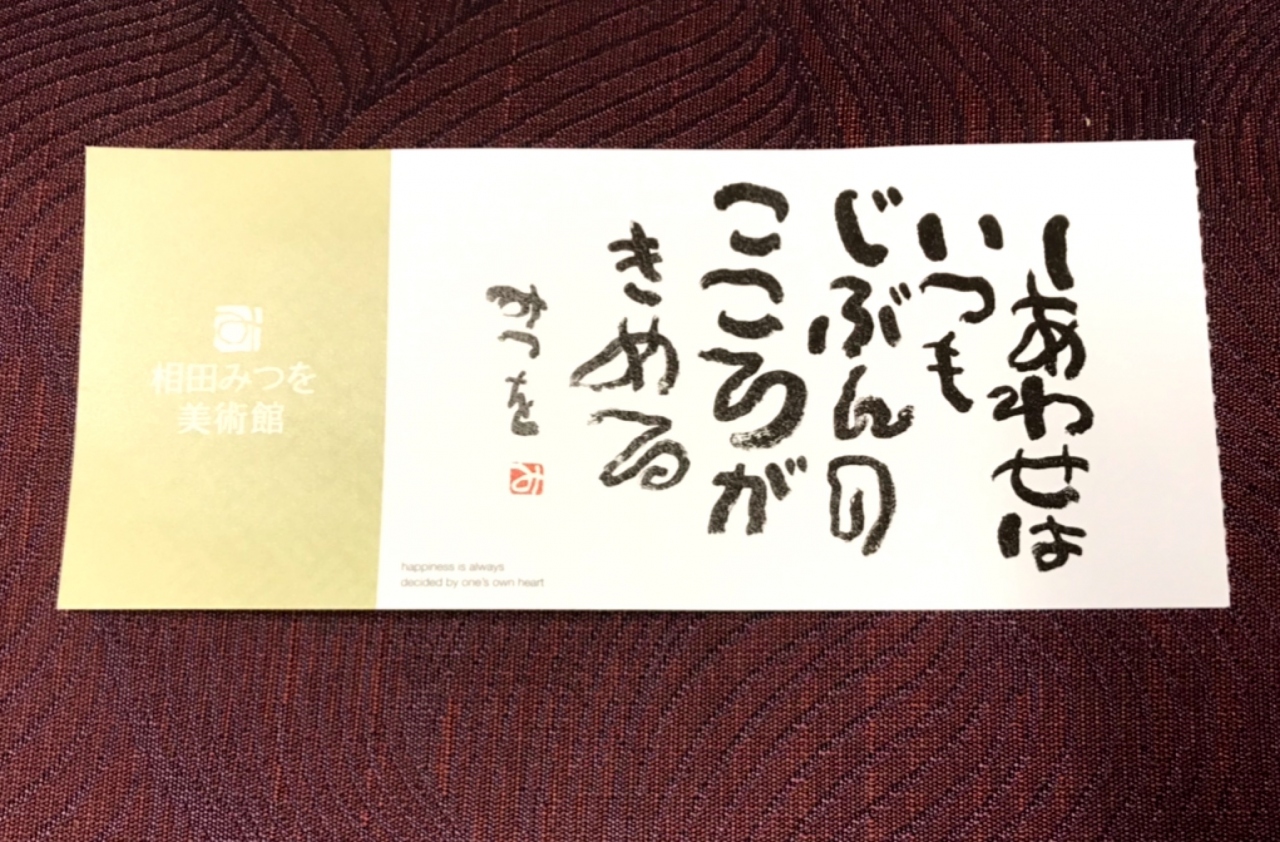 しあわせは
いつも
じぶんの
こころが
きめる
みつを
相田みつを
美術館
happiness is always
decided by one's own heart